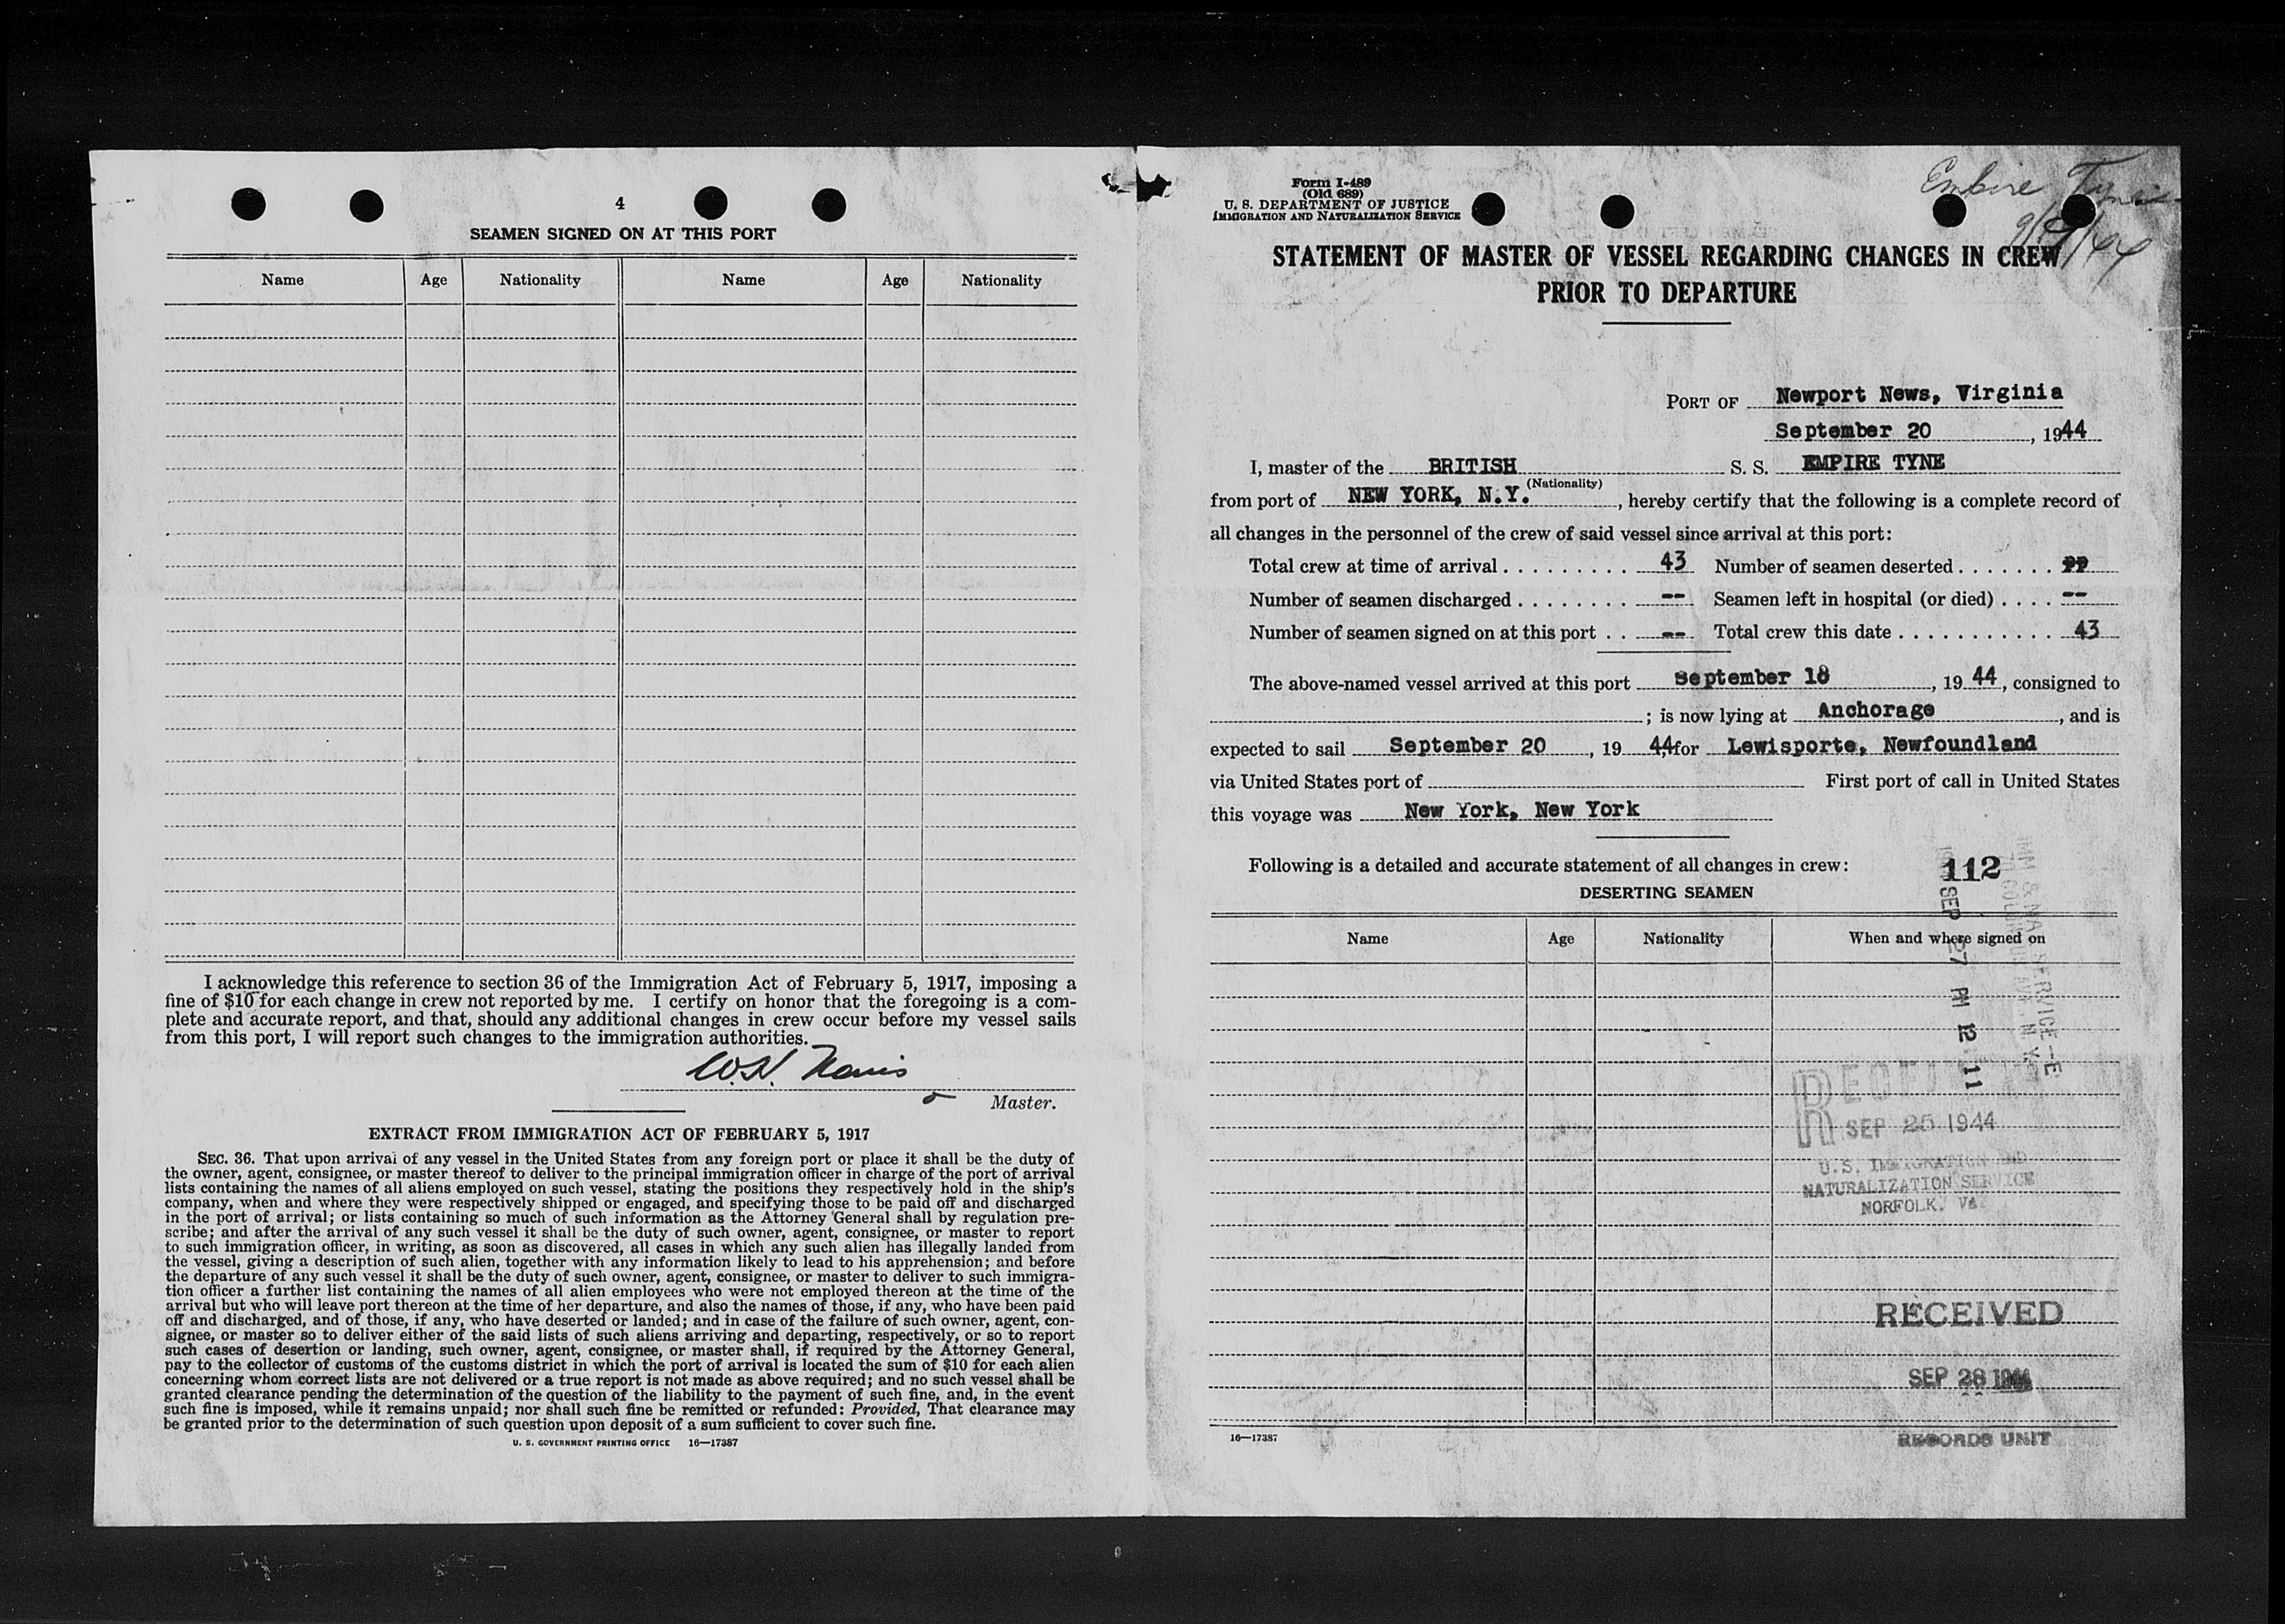 4
SEAMEN SIGNED ON AT THIS PORT
Name Age Nationality Name Age Nationality
I acknowledge this reference to section 36 of the Immigration Act of February 5, 1917, imposing a
fine of $10 for each change in crew not reported by me. I certify on honor that the foregoing is a com-
plete and accurate report, and that, should any additional changes in crew occur before my vessel sails
from this port, I will report such changes to the immigration authorities.
W.H.
Master.
EXTRACT FROM IMMIGRATION ACT OF FEBRUARY 5, 1917
SEC. 36. That upon arrival of any vessel in the United States from any foreign port or place it shall be the duty of
the owner, agent, consignee, or master thereof to deliver to the principal immigration officer in charge of the port of arrival
lists containing the names of all aliens employed on such vessel, stating the positions they respectively hold in the ship's
company, when and where they were respectively shipped or engaged, and specifying those to be paid off and discharged
in the port of arrival; or lists containing so much of such information as the Attorney General shall by regulation pre-
scribe; and after the arrival of any such vessel it shall be the duty of such owner, agent, consignee, or master to report
to such immigration officer, in writing, as soon as discovered, all cases in which any such alien has illegally landed from
the vessel, giving a description of such alien, together with any information likely to lead to his apprehension; and before
the departure of any such vessel it shall be the duty of such owner, agent, consignee, or master to deliver to such immigra-
tion officer a further list containing the names of all alien employees who were not employed thereon at the time of the
arrival but who will leave port thereon at the time of her departure, and also the names of those, if any, who have been paid
off and discharged, and of those, if any, who have deserted or landed; and in case of the failure of such owner, agent, con-
signee, or master so to deliver either of the said lists of such aliens arriving and departing, respectively, or so to report
such cases of desertion or landing, such owner, agent, consignee, or master shall, if required by the Attorney General,
pay to the collector of customs of the customs district in which the port of arrival is located the sum of $10 for each alien
concerning whom correct lists are not delivered or a true report is not made as above required; and no such vessel shall be
granted clearance pending the determination of the question of the liability to the payment of such fine, and, in the event
such fine is imposed, while it remains unpaid; nor shall such fine be remitted or refunded: Provided, That clearance may
be granted prior to the determination of such question upon deposit of a sum sufficient to cover such fine.
U. S. GOVERNMENT PRINTING OFFICE 16—17387
Form I-489
(Old 689)
U. S. DEPARTMENT OF JUSTICE
IMMIGRATION AND NATURALIZATION SERVICE
Empire Tyne
STATEMENT OF MASTER OF VESSEL REGARDING CHANGES IN CREW
PRIOR TO DEPARTURE
PORT OF Newport News, Virginia
September 20, 1944
I, master of the BRITISH S. S. EMPIRE TYNE
(Nationality)
from port of NEW YORK, N.Y., hereby certify that the following is a complete record of
all changes in the personnel of the crew of said vessel since arrival at this port:
Total crew at time of arrival . . . . . . . . . 43 Number of seamen deserted . . . . . . .
Number of seamen discharged . . . . . . . . -- Seamen left in hospital (or died) . . . . --
Number of seamen signed on at this port . . -- Total crew this date . . . . . . . . . . . . 43
The above-named vessel arrived at this port September 18, 19 44, consigned to
; is now lying at Anchorage, and is
expected to sail September 20, 19 44, for Lewisporte, Newfoundland
via United States port of First port of call in United States
this voyage was New York, New York
Following is a detailed and accurate statement of all changes in crew: 112
DESERTING SEAMEN
Name Age Nationality When and where signed on
SEP 27 PM 12 11
RECEIVED
SEP 25 1944
U.S. IMMIGRATION AND
NATURALIZATION SERVICE
NORFOLK, VA
RECEIVED
SEP 28 1944
RECORDS UNIT
16—17387